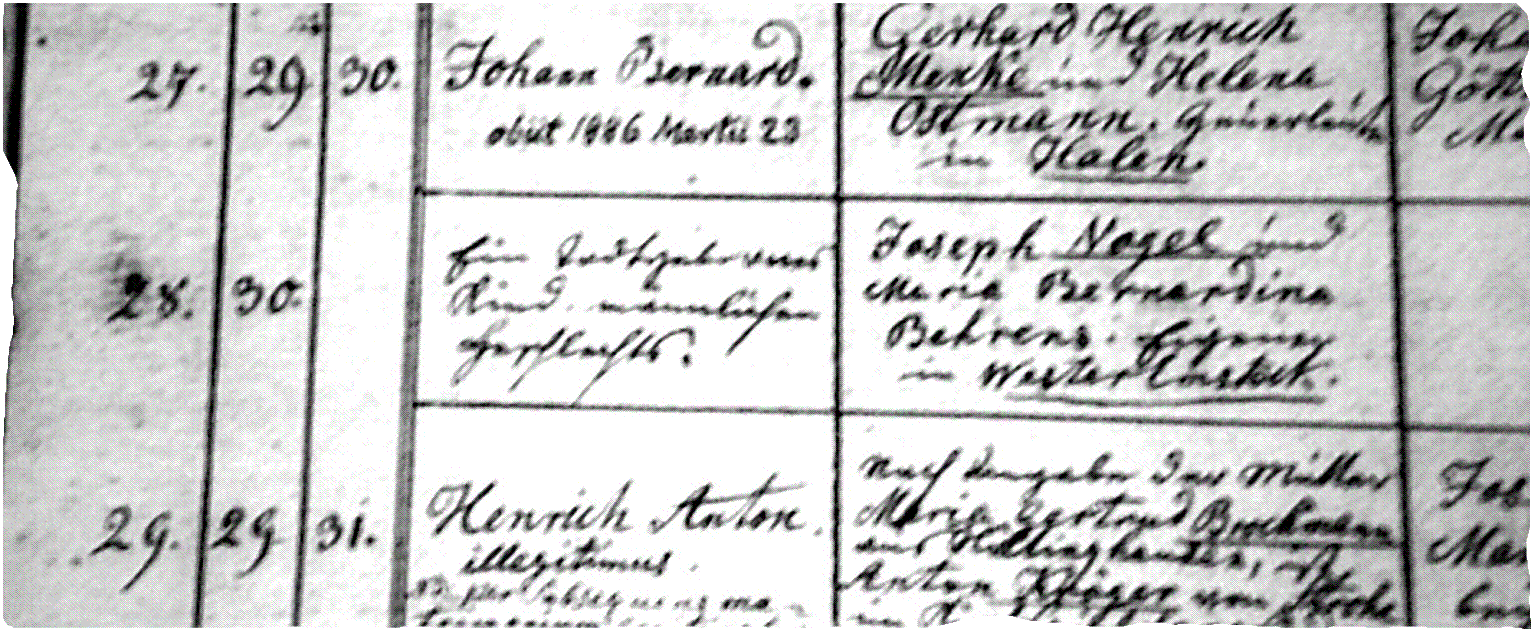 27. 29 30. Johann Bernard.
obiit 1886 Martii 23
Gerhard Henrich
Menke und Helena
Ostmann. Heuerleute
in Halen
Joh
Göt
Ma
28. 30.
Ein todtgeborenes
Kind männlichen
Geschlechts.
Joseph Nagel und
Maria Bernardina
Behrens. Eigener
in Westeremstek.
29. 29 31. Henrich Anton.
illegitimus.
NB. per subsequens ma-
Nach Angabe der Mutter
Maria Gertrud Brockmann
aus Höltinghausen, ist
Anton Kröger von
Jos
Ma